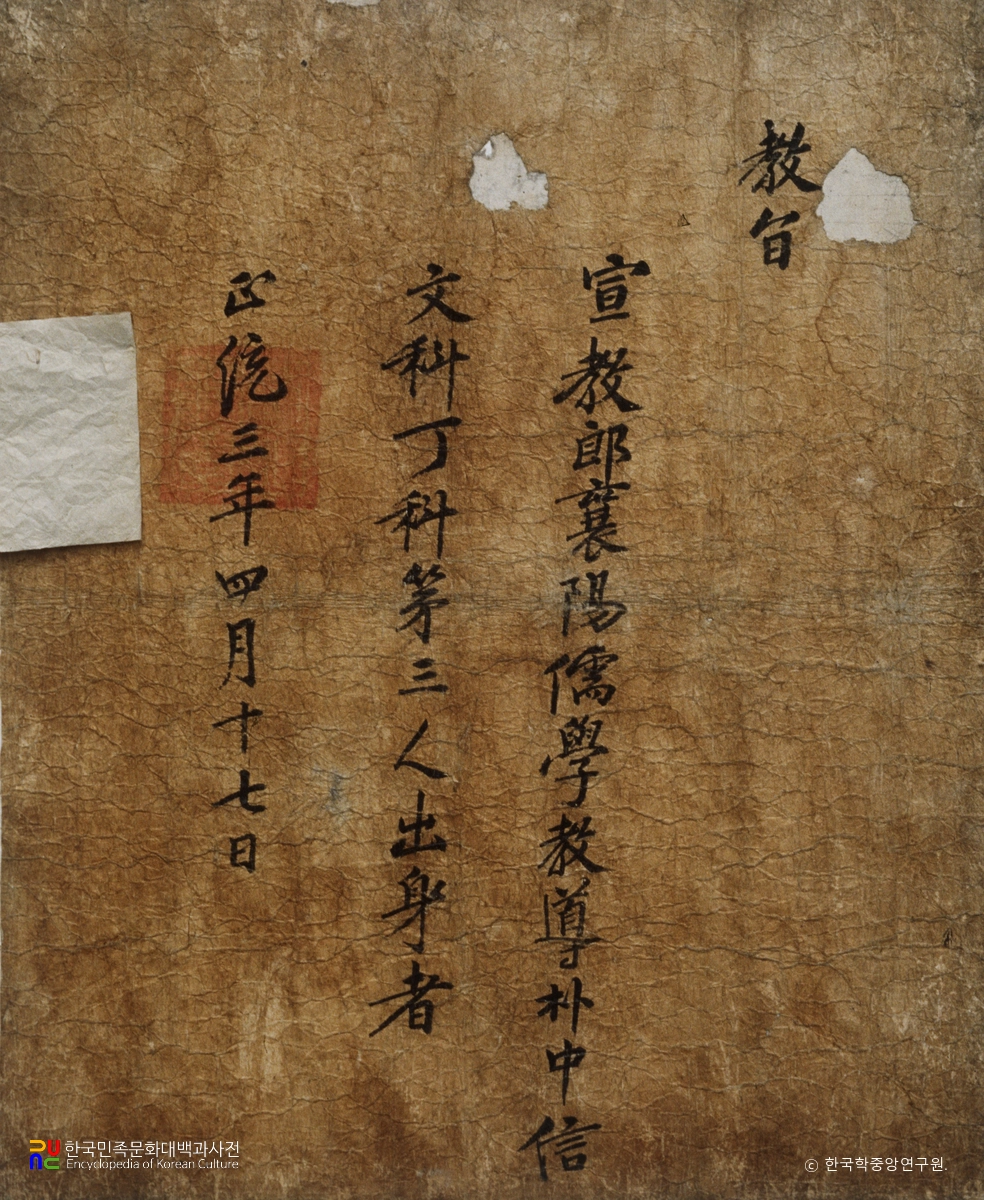 教旨
宣教郎襄陽儒學教導朴中信
文科丁科第三人出身者
正統三年四月十七日
한국민족문화대백과사전
Encyclopedia of Korean Culture
© 한국학중앙연구원.